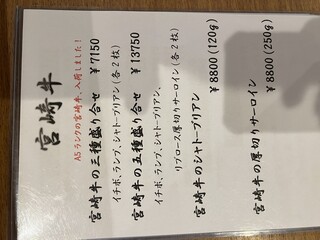 宮崎牛
A5ランクの宮崎牛、入荷しました！
宮崎牛の三種盛り合せ ￥7150
イチボ、ランプ、シャトーブリアン（各2枚）
宮崎牛の五種盛り合せ ￥13750
イチボ、ランプ、シャトーブリアン、
リブロース厚切りサーロイン（各2枚）
宮崎牛のシャトーブリアン
￥8800（120g）
宮崎牛の厚切りサーロイン
￥8800（250g）